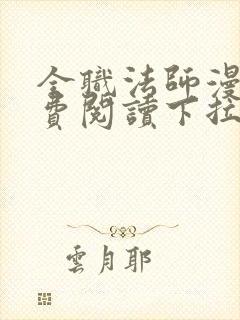 全職法師漫
費閱讀下拉
雲月耶